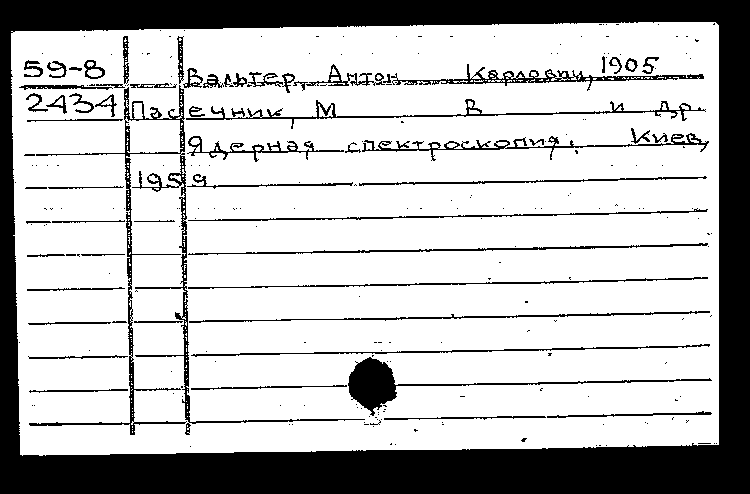 59-8 Вальтер, Антон Карлович, 1905
2434 Пасечник, М В и др.
Ядерная спектроскопия. Киев,
1959.